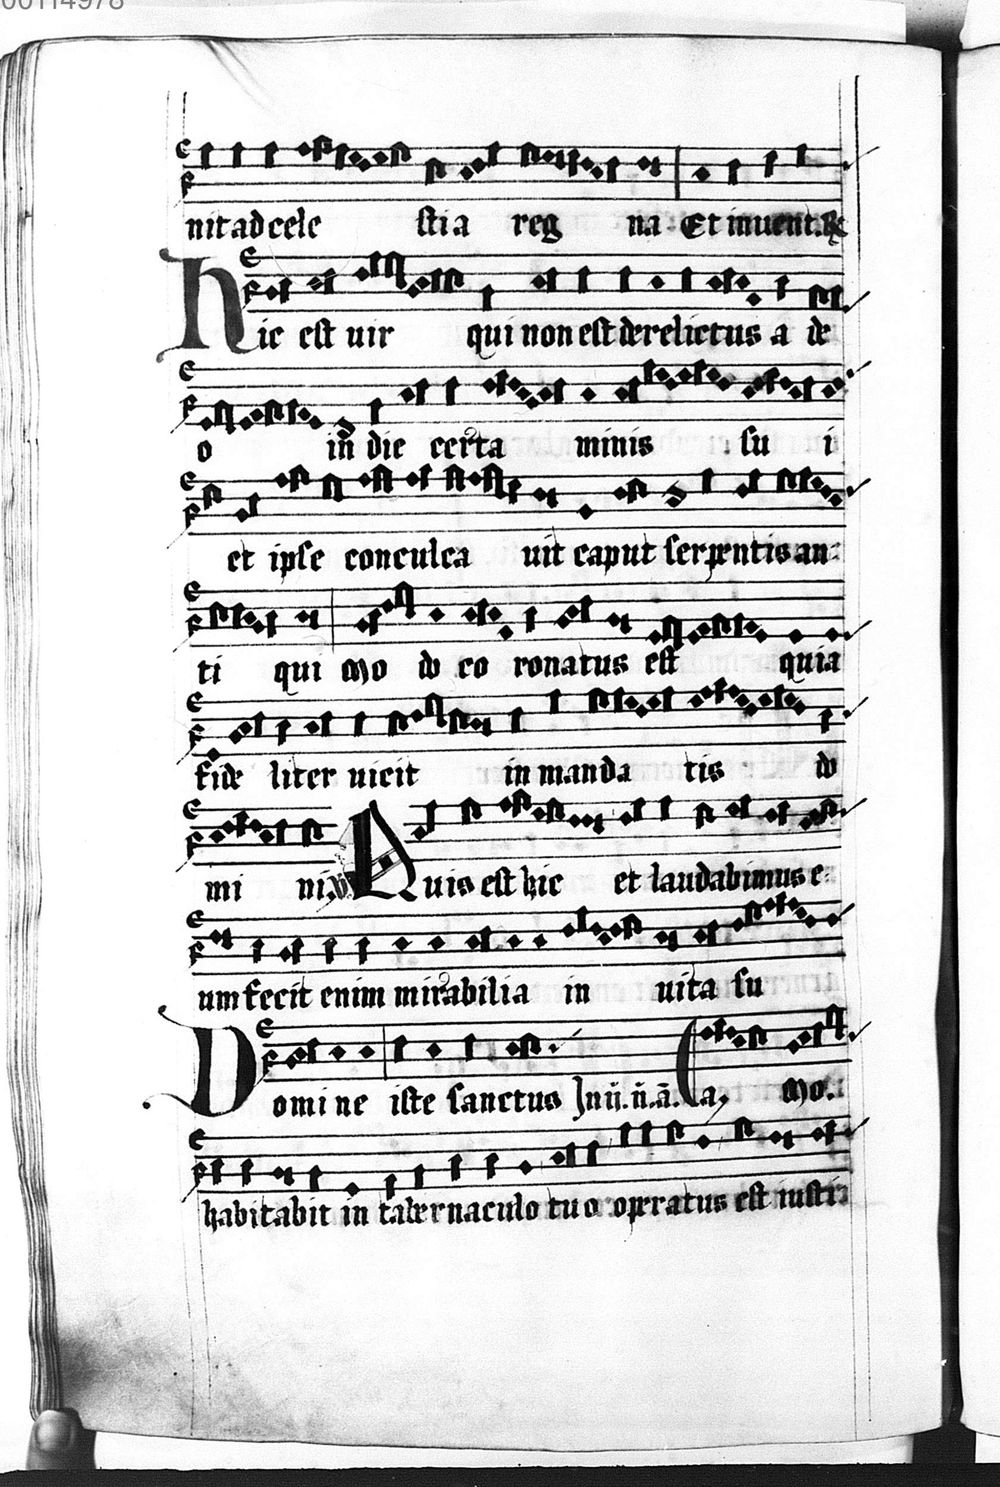 00114978
nit ad cele stia reg na Et inuent. R
Hic est uir qui non est derelictus a de
o in die certa minis su i
et ipse conculca uit caput serpentis an
ti qui mo do co ronatus est quia
fide liter uicit in manda tis do
mi ni V Quis est hic et laudabimus e
um fecit enim mirabilia in uita su
Domi ne iste sanctus In ii. n. a. a, mo.
habitabit in tabernaculo tuo operatus est iusti